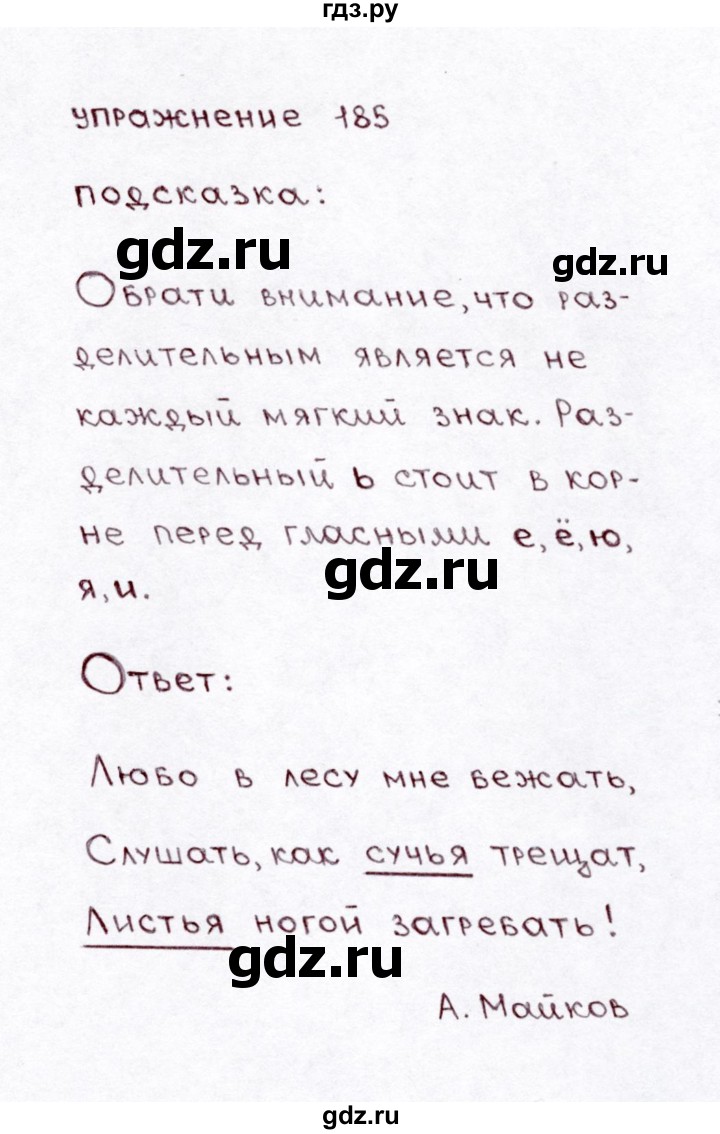 гдз.ру
упражнение 185
подсказка:
gdz.ru
gdz.ru
Обрати внимание, что раз-
делительным является не
каждый мягкий знак. Раз-
делительный ь стоит в кор-
не перед гласными е, ё, ю,
gdz.ru
я, и.
Ответ:
Любо в лесу мне бежать,
Слушать, как сучья трещат,
Листья ногой загребать!
gdz.ru
А. Майков
gdz.ru